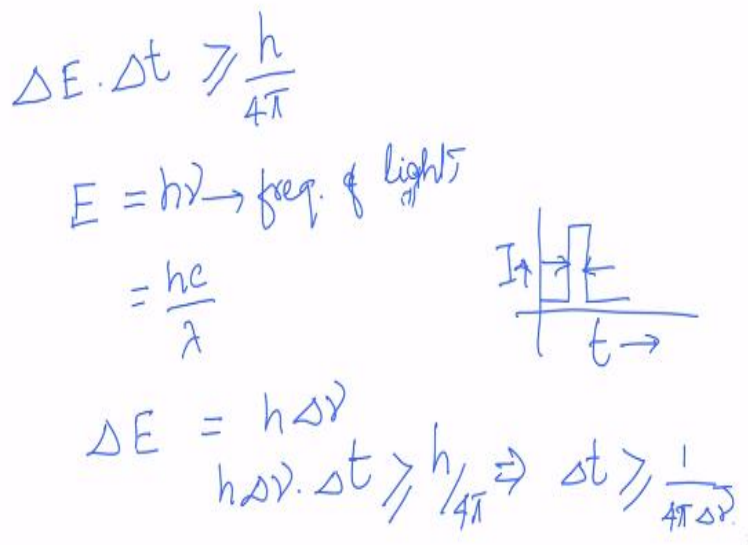 ΔE.Δt ≥ h/4π
E = hν → freq. of light
= hc/λ
I↑
t →
ΔE = hΔν
hΔν.Δt ≥ h/4π ⇒ Δt ≥ 1/4πΔν.